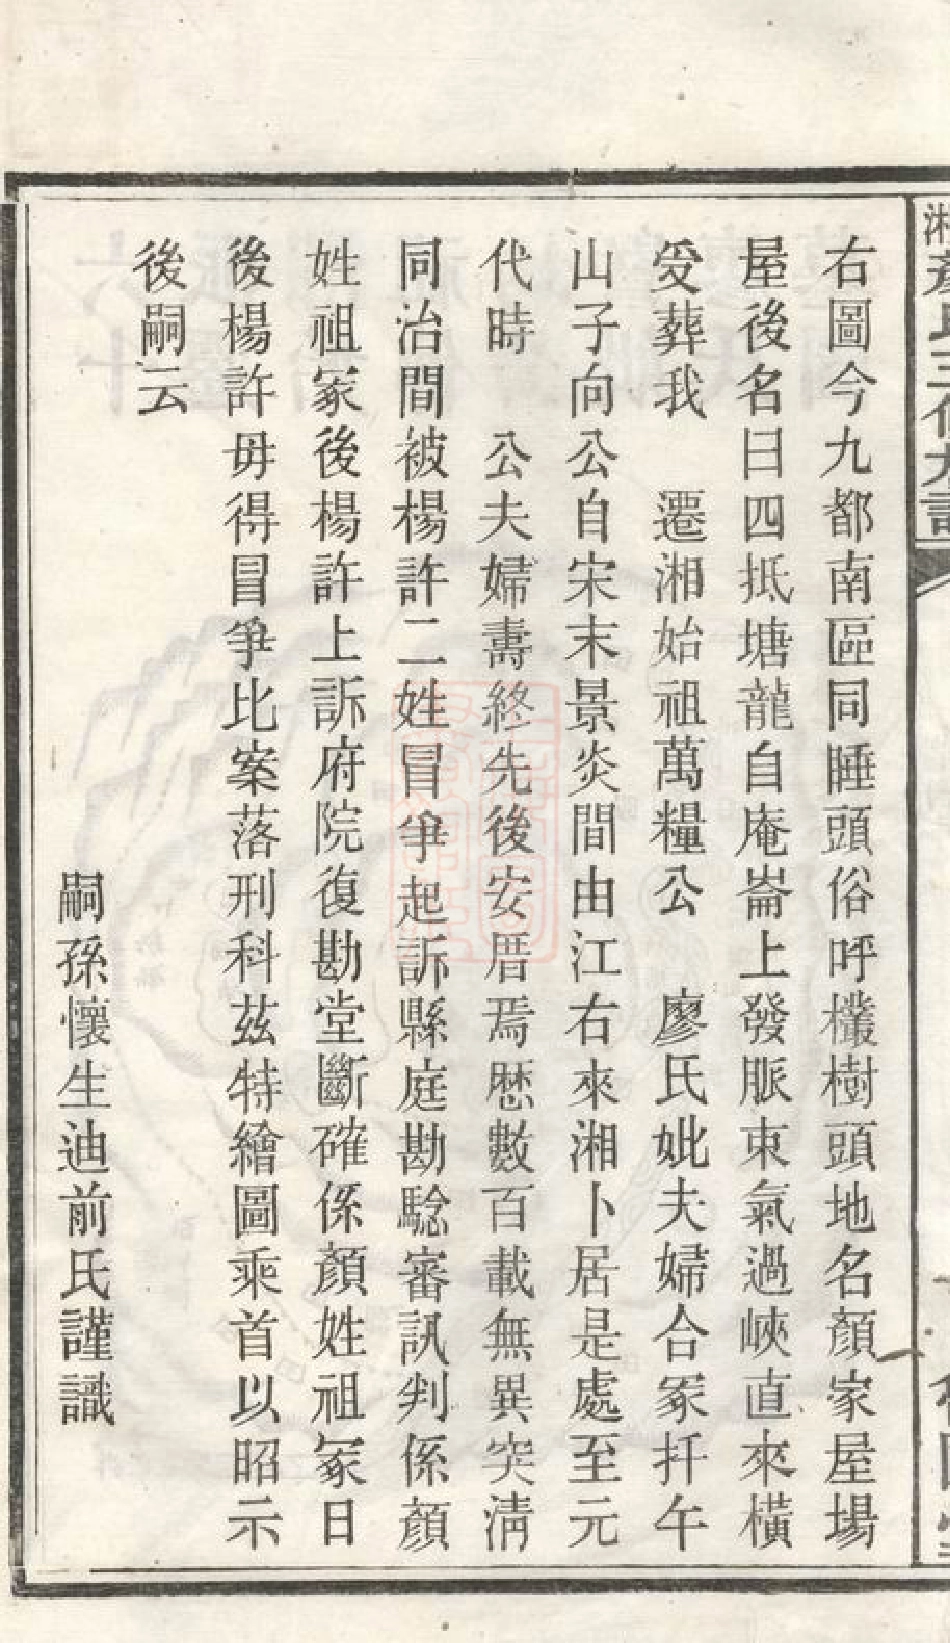 右圖今九都南區同睡頭俗呼欉樹頭地名顏家屋場
屋後名曰四抵塘龍自庵崙上發脈束氣過峽直來橫
受葬我　遷湘始祖萬糧公　廖氏妣夫婦合冢扦午
山子向公自宋末景炎間由江右來湘卜居是處至元
代時　公夫婦壽終先後安厝焉歷數百載無異突淸
同治間被楊許二姓冒爭起訴縣庭勘騐審訊判係顏
姓祖冢後楊許上訴府院復勘堂斷確係顏姓祖冢日
後楊許毋得冒爭比案落刑科茲特繪圖乘首以昭示
後嗣云
嗣孫懷生迪前氏謹識